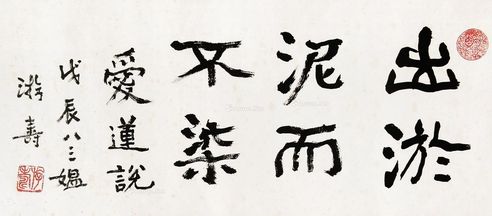 出淤
泥而
不染
愛蓮説
戊辰八三媪
游壽